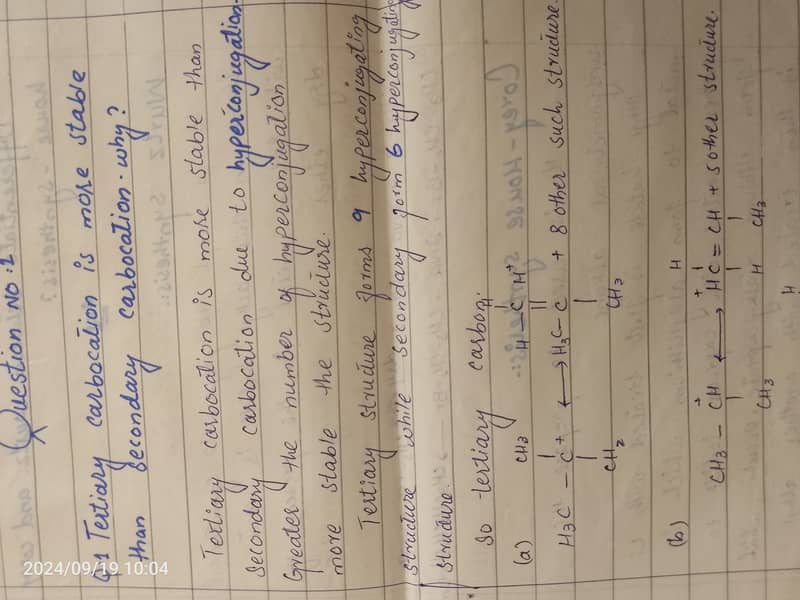 Question NO:1
Q1 Tertiary carbocation is more stable
than secondary carbocation. why?
Tertiary carbocation is more stable than
secondary carbocation due to hyperconjugation.
Greater the number of hyperconjugation
more stable the structure.
Tertiary structure forms 9 hyperconjugating
structure while secondary form 6 hyperconjugating
structure.
So tertiary carbon:
(a) CH3 H H+
H - C
H3C - C+ ⟷ H3C - C + 8 other such structure.
CH2 CH3
(b) H
CH3 - CH+ ⟷ +HC = CH + 5 other structure.
CH3 H CH3
H
2024/09/19 10:04